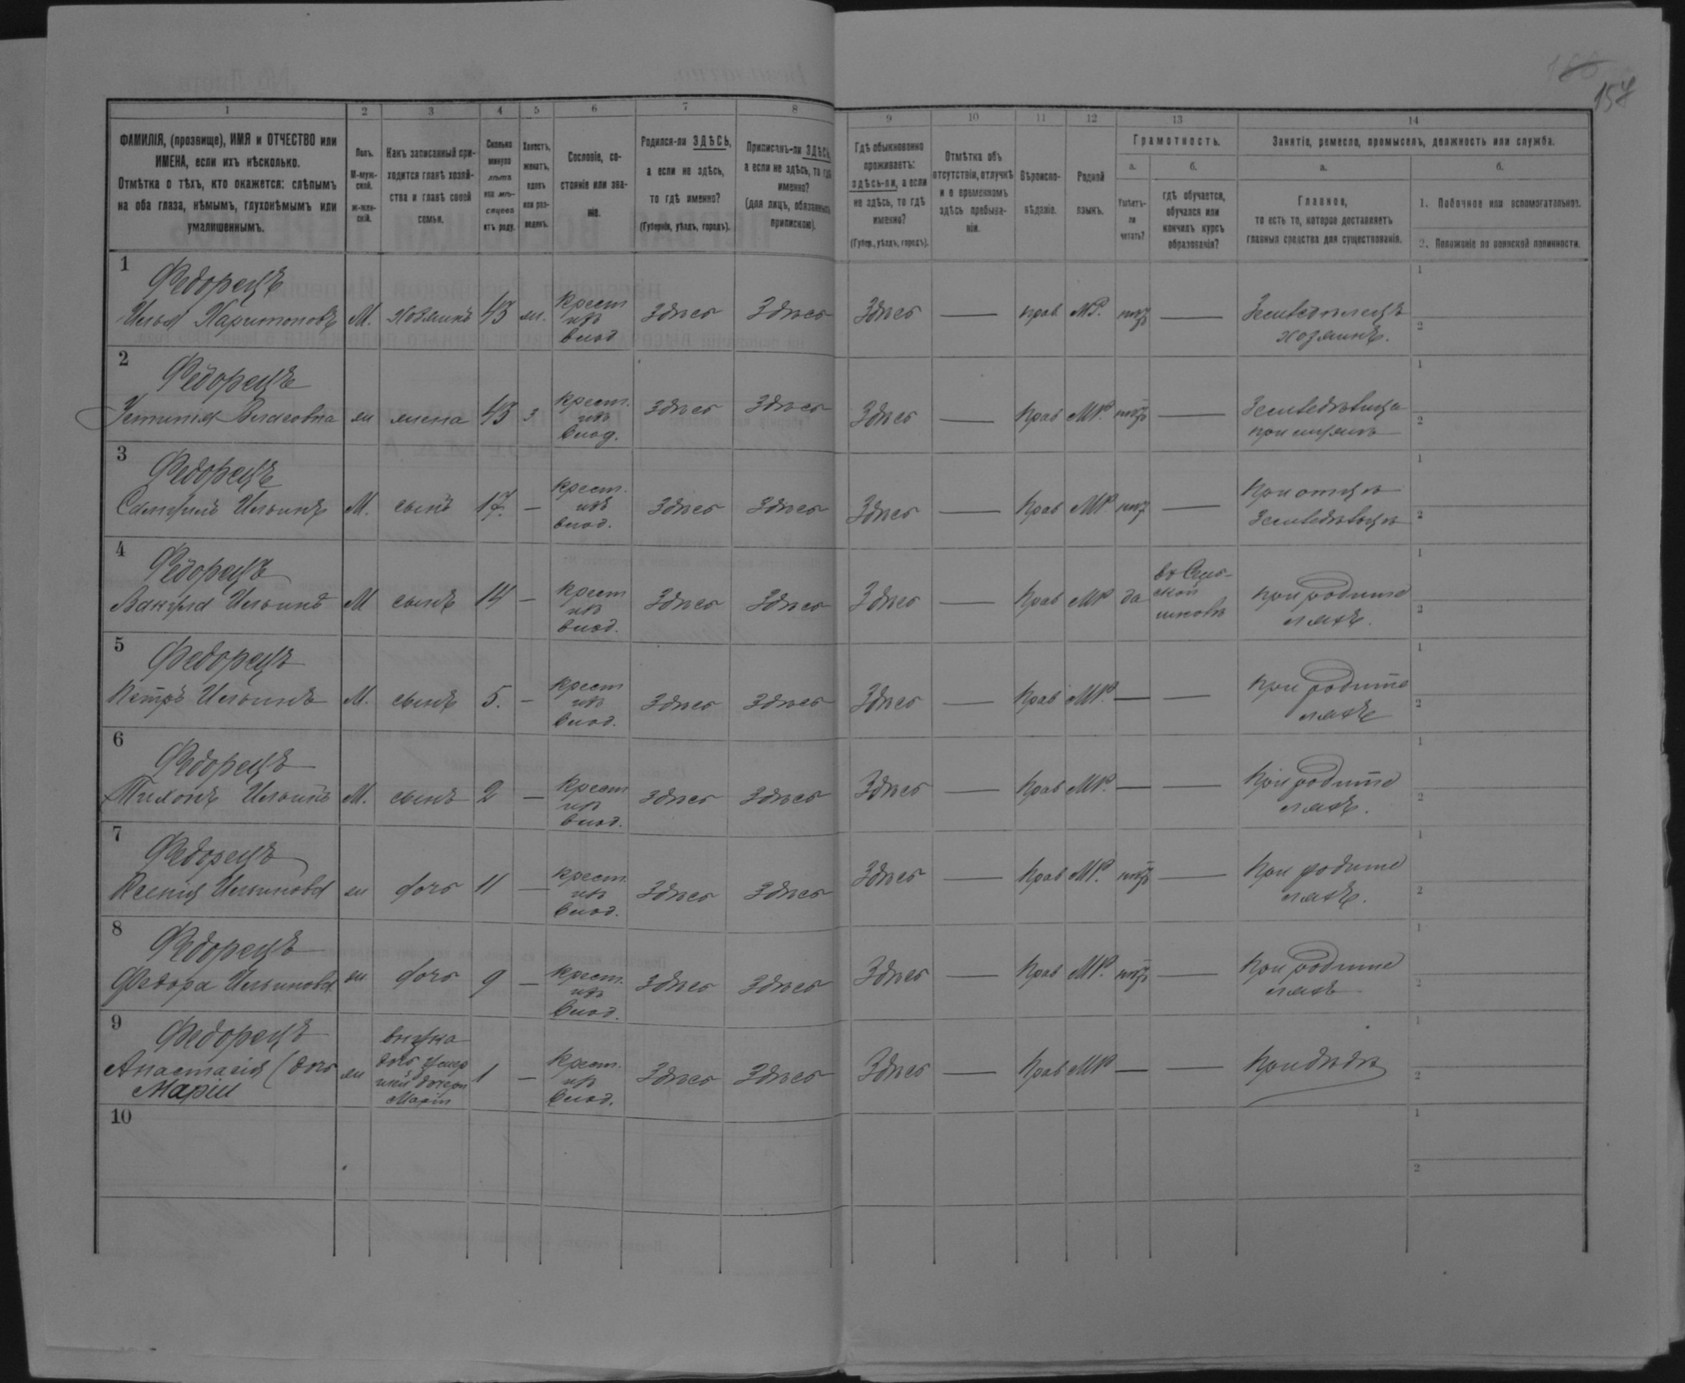 150
157
1 2 3 4 5 6 7 8 9 10 11 12 13 14
ФАМИЛІЯ, (прозвище), ИМЯ и ОТЧЕСТВО или
ИМЕНА, если ихъ нѣсколько.
Отмѣтка о тѣхъ, кто окажется: слѣпымъ
на оба глаза, нѣмымъ, глухонѣмымъ или
умалишеннымъ.
Полъ.
М-муж-
ской.
Ж-жен-
скій.
Какъ записанный при-
ходится главѣ хозяй-
ства и главѣ своей
семьи.
Сколько
минуло
лѣтъ
или мѣ-
сяцевъ
отъ роду.
Холостъ,
женатъ,
вдовъ
или раз-
веденъ.
Сословіе, со-
стояніе или зва-
ніе.
Родился-ли ЗДѢСЬ,
а если не здѣсь,
то гдѣ именно?
(Губернія, уѣздъ, городъ).
Приписанъ-ли ЗДѢСЬ,
а если не здѣсь, то гдѣ
именно?
(для лицъ, обязанныхъ
припискою).
Гдѣ обыкновенно
проживаетъ:
здѣсь-ли, а если
не здѣсь, то гдѣ
именно?
(Губер., уѣздъ, городъ).
Отмѣтка объ
отсутствіи, отлучкѣ
и о временномъ
здѣсь пребыва-
ніи.
Вѣроиспо-
вѣданіе.
Родной
языкъ.
Грамотность.
а.
Умѣетъ-
ли
читать?
б.
гдѣ обучается,
обучался или
кончилъ курсъ
образованія?
Занятіе, ремесло, промыселъ, должность или служба.
а.
Главное,
то есть то, которое доставляетъ
главныя средства для существованія.
б.
1. Побочное или вспомогательное.
2. Положеніе по воинской повинности.
1 Федорецъ
Илья Харитоновъ М. хозяинъ 45 ж. крест. изъ влад. Здѣсь Здѣсь Здѣсь — прав М.Р. нѣтъ — Земледѣлецъ хозяинъ. 1 2
2 Федорецъ
Устинья Власовна ж жена 45 з крест. изъ влад. Здѣсь Здѣсь Здѣсь — прав М.Р. нѣтъ — 1 2
3 Федорецъ
Ильинъ М. сынъ 17. — крест. изъ влад. Здѣсь Здѣсь Здѣсь — прав М.Р. нѣтъ — При отцѣ 1 2
4 Федорецъ
Ильинъ М сынъ 14 — крест изъ влад. Здѣсь Здѣсь Здѣсь — прав М.Р да въ Сель-ской школѣ при родителяхъ. 1 2
5 Федорецъ
Петръ Ильинъ М. сынъ 5. — крест изъ влад. Здѣсь Здѣсь Здѣсь — прав М.Р. — — при родителяхъ 1 2
6 Федорецъ
Тихонъ Ильинъ М. сынъ 2 — крест изъ влад. Здѣсь Здѣсь Здѣсь — прав М.Р. — — при родителяхъ. 1 2
7 Федорецъ
Ксенія Ильинова ж дочь 11 — крест. изъ влад. Здѣсь Здѣсь Здѣсь — прав М.Р. нѣтъ — При родителяхъ. 1 2
8 Федорецъ
Федора Ильинова ж дочь 9 — крест. изъ влад. Здѣсь Здѣсь Здѣсь — прав М.Р. нѣтъ — при родителяхъ 1 2
9 Федорецъ
Анастасія (дочь Маріи ж внучка дочь умершей дочери Маріи 1 — крест. изъ влад. Здѣсь Здѣсь Здѣсь — прав М.Р — — при дѣдѣ 1 2
10 1 2